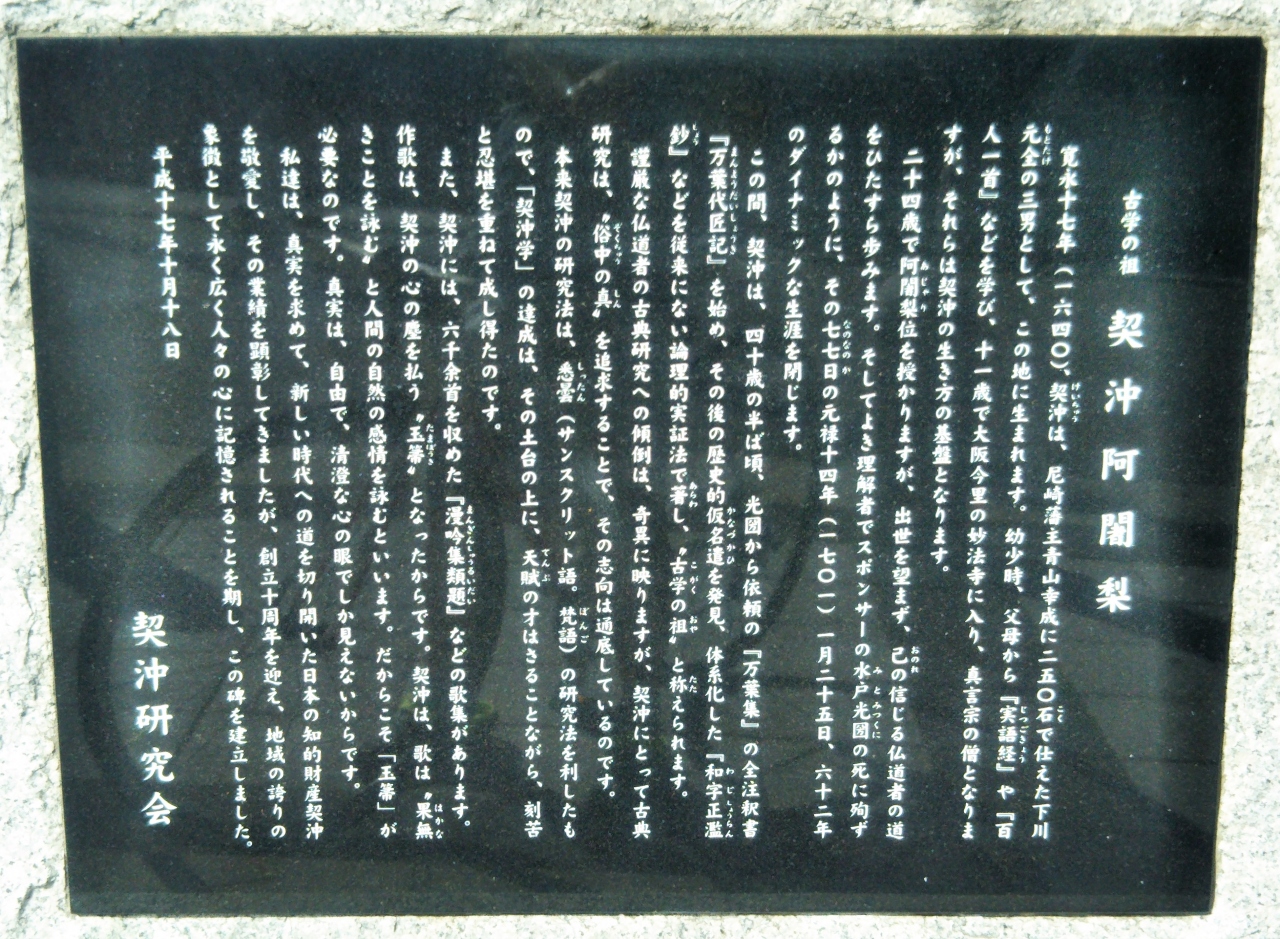 古学の祖 契沖阿闍梨
寛永十七年（一六四〇）、契沖は、尼崎藩主青山幸成に二五〇石で仕えた下川
元全の三男として、この地に生まれます。幼少時、父母から『実語経』や『百
人一首』などを学び、十一歳で大阪今里の妙法寺に入り、真言宗の僧となりま
すが、それらは契沖の生き方の基盤となります。
二十四歳で阿闍梨位を授かりますが、出世を望まず、己の信じる仏道者の道
をひたすら歩みます。そしてよき理解者でスポンサーの水戸光圀の死に殉ず
るかのように、その七七日の元禄十四年（一七〇一）一月二十五日、六十二年
のダイナミックな生涯を閉じます。
この間、契沖は、四十歳の半ば頃、光圀から依頼の『万葉集』の全注釈書
『万葉代匠記』を始め、その後の歴史的仮名遣を発見、体系化した『和字正濫
鈔』などを従来にない論理的実証法で著し、〝古学の祖〟と称えられます。
謹厳な仏道者の古典研究への傾倒は、奇異に映りますが、契沖にとって古典
研究は、〝俗中の真〟を追求することで、その志向は通底しているのです。
本来契沖の研究法は、悉曇（サンスクリット語。梵語）の研究法を利したも
ので、「契沖学」の達成は、その土台の上に、天賦の才はさることながら、刻苦
と忍堪を重ねて成し得たのです。
また、契沖には、六千余首を収めた『漫吟集類題』などの歌集があります。
作歌は、契沖の心の塵を払う〝玉箒〟となったからです。契沖は、歌は〝果無
きことを詠む〟と人間の自然の感情を詠むといいます。だからこそ「玉箒」が
必要なのです。真実は、自由で、清澄な心の眼でしか見えないからです。
私達は、真実を求めて、新しい時代への道を切り開いた日本の知的財産契沖
を敬愛し、その業績を顕彰してきましたが、創立十周年を迎え、地域の誇りの
象徴として永く広く人々の心に記憶されることを期し、この碑を建立しました。
平成十七年十月十八日
契沖研究会